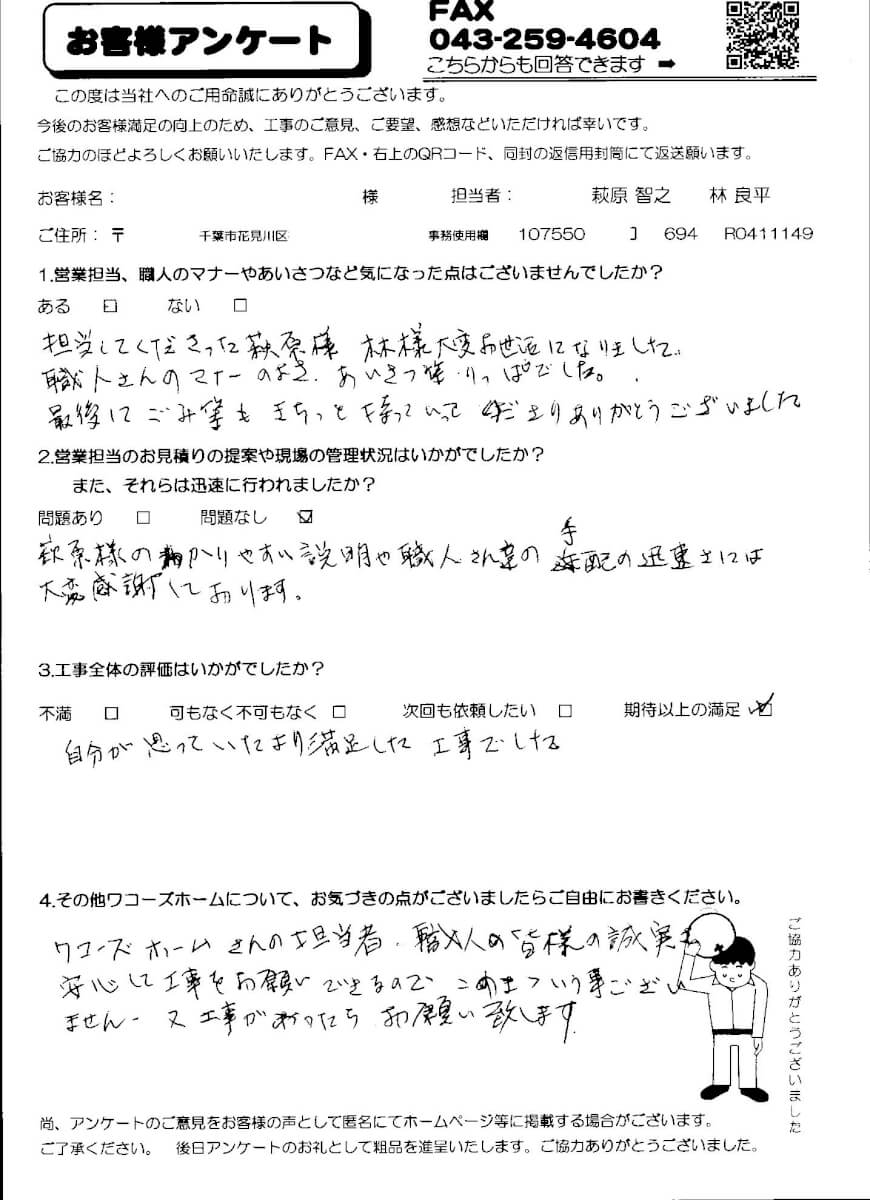 お客様アンケート
FAX
043-259-4604
こちらからも回答できます ➡
この度は当社へのご用命誠にありがとうございます。
今後のお客様満足の向上のため、工事のご意見、ご要望、感想などいただければ幸いです。
ご協力のほどよろしくお願いいたします。FAX・右上のQRコード、同封の返信用封筒にて返送願います。
お客様名： 様 担当者： 萩原 智之 林 良平
ご住所：〒 千葉市花見川区 事務使用欄 107550 】 694 R0411149
1.営業担当、職人のマナーやあいさつなど気になった点はございませんでしたか？
ある □ ない □
担当してくださった萩原様 林様大変お世話になりました。
職人さんのマナーのよさ、あいさつ等りっぱでした。
最後にごみ等もきちっと持っていって くださりありがとうございました
2.営業担当のお見積りの提案や現場の管理状況はいかがでしたか？
また、それらは迅速に行われましたか？
問題あり □ 問題なし ☑
萩原様のわかりやすい説明や職人さん達の手配の迅速さには
大変感謝しております。
3.工事全体の評価はいかがでしたか？
不満 □ 可もなく不可もなく □ 次回も依頼したい □ 期待以上の満足 ☑
自分が思っていたより満足した工事でした
4.その他ワコーズホームについて、お気づきの点がございましたらご自由にお書きください。
ワコーズホームさんの担当者、職人の皆様の誠実
安心して工事をお願いできるので こめまつ いう事ござい
ません。又工事があったら お願い致します
ご協力ありがとうございました
尚、アンケートのご意見をお客様の声として匿名にてホームページ等に掲載する場合がございます。
ご了承ください。 後日アンケートのお礼として粗品を進呈いたします。ご協力ありがとうございました。